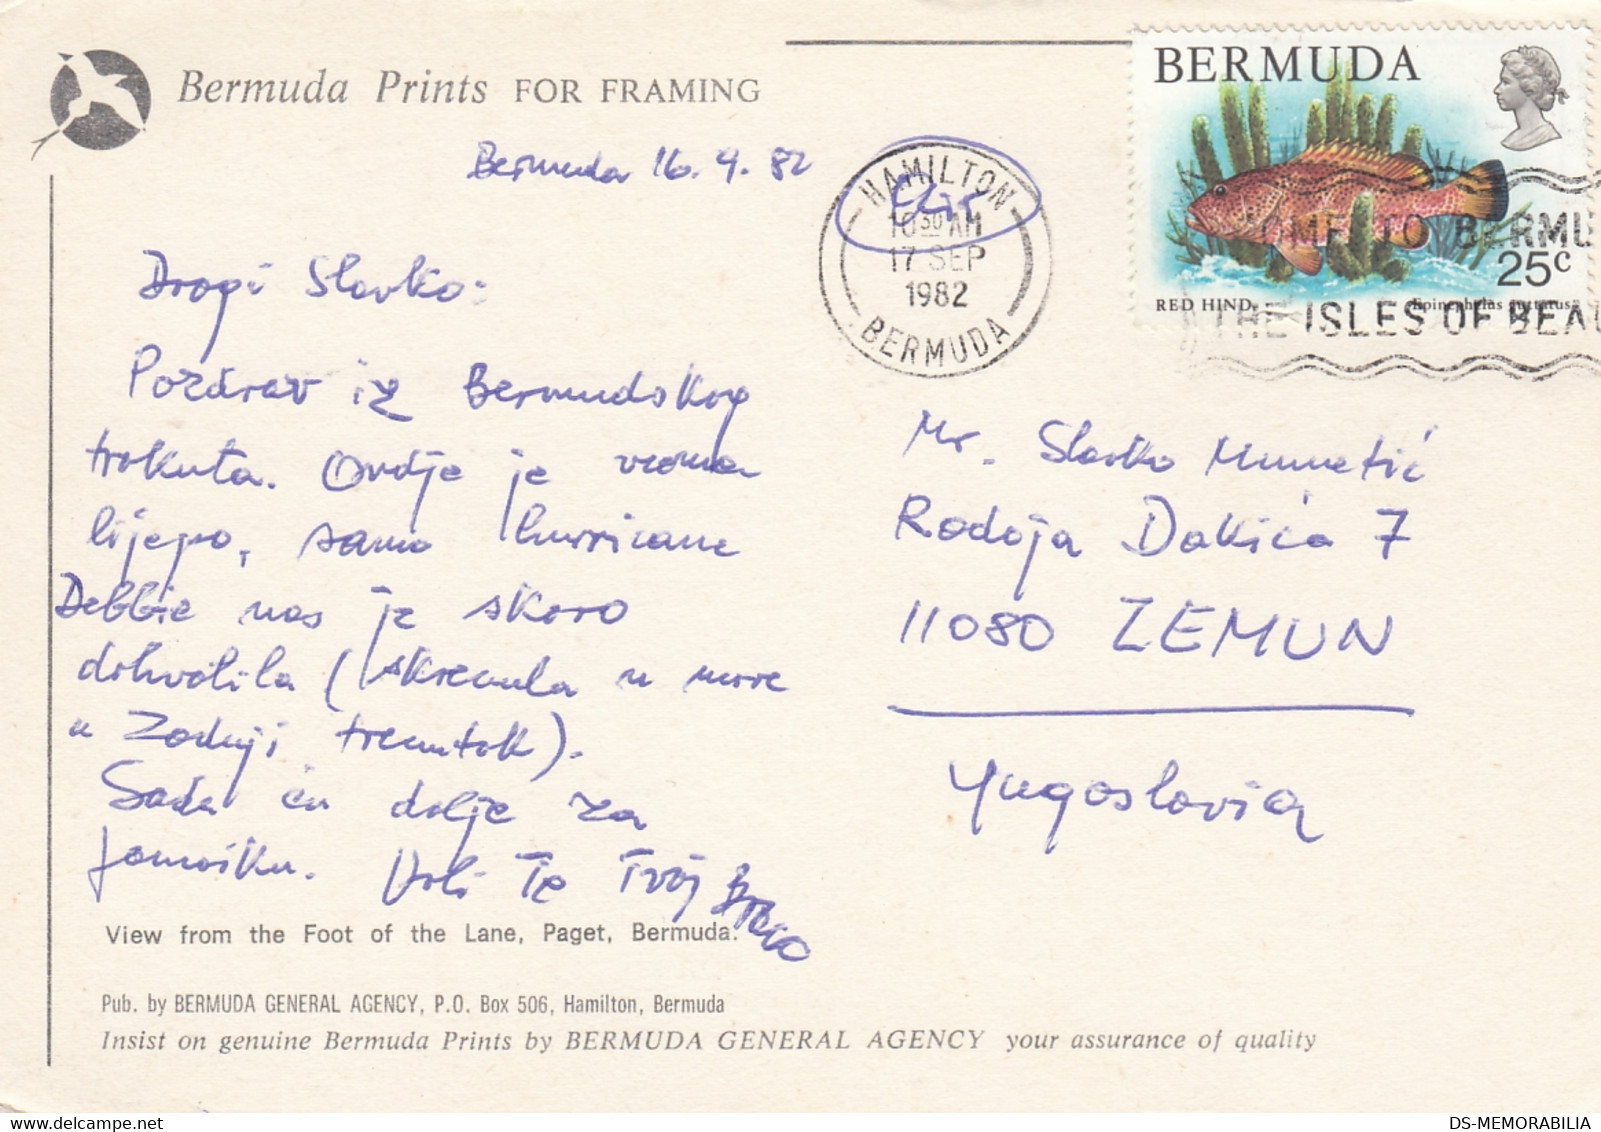 Bermuda Prints FOR FRAMING
Bermuda 16. 9. 82
HAMILTON
10 30 AM
17 SEP
1982
BERMUDA
BERMUDA
25c
RED HIND
Epinephelus guttatus
OME TO BERMU
THE ISLES OF BEAU
Dragi Slavko:
Pozdrav iz Bermudskog
trokuta. Ovdje je veoma
lijepo, samo hurricane
Debbie nas je skoro
dohvatila (skrenula u more
u zadnji trenutak).
Sada ću dalje za
Jamaiku. Voli Te Tvoj Branko
Mr. Slavko Mumetić
Radoja Dakića 7
11080 ZEMUN
Yugoslavia
View from the Foot of the Lane, Paget, Bermuda.
Pub. by BERMUDA GENERAL AGENCY, P.O. Box 506, Hamilton, Bermuda
Insist on genuine Bermuda Prints by BERMUDA GENERAL AGENCY your assurance of quality
DS-MEMORABILIA